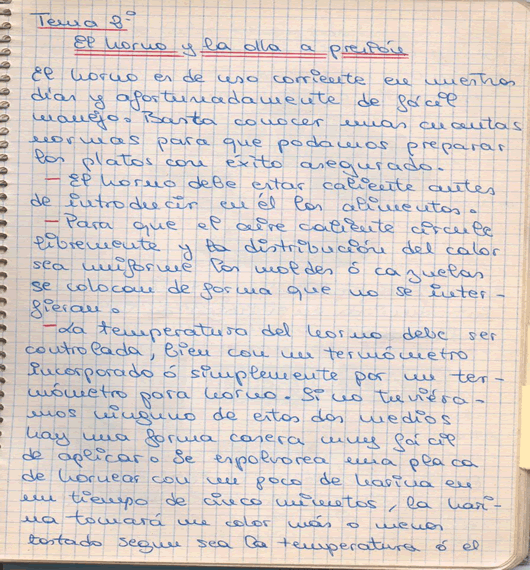 Tema 8º
El horno y la olla a presión
El horno es de uso corriente en nuestros
días y afortunadamente de fácil
manejo. Basta conocer unas cuantas
normas para que podamos preparar
los platos con éxito asegurado.
– El horno debe estar caliente antes
de introducir en él los alimentos.
– Para que el aire caliente circule
libremente y la distribución del calor
sea uniforme los moldes ó cazuelas
se colocan de forma que no se inter-
fieran.
– La temperatura del horno debe ser
controlada, bien con un termómetro
incorporado ó simplemente por un ter-
mómetro para horno. Si no tuviéra-
mos ninguno de estos dos medios
hay una forma casera muy fácil
de aplicar. Se espolvorea una placa
de hornear con un poco de harina en
un tiempo de cinco minutos, la hari-
na tomará un color más o menos
tostado segun sea la temperatura ó el